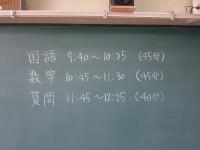 国語 9:40～10:25 (45分)
数学 10:45～11:30 (45分)
質問 11:45～12:25 (40分)